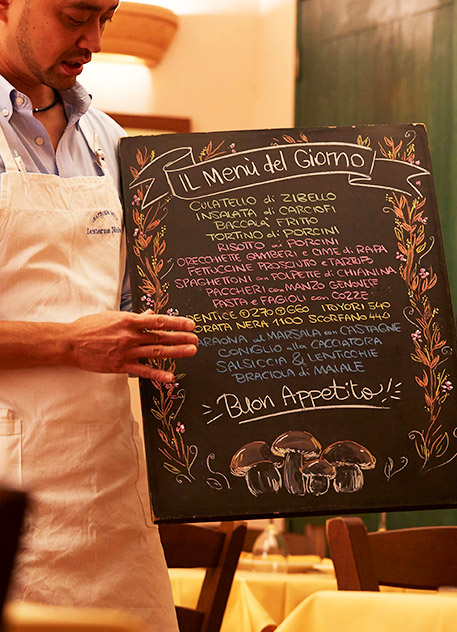 IL Menù del Giorno
CULATELLO di ZIBELLO
INSALATA di CARCIOFI
BACCALÀ FRITTO
TORTINO di PORCINI
RISOTTO ai PORCINI
ORECCHIETTE GAMBERI e CIME di RAPA
FETTUCINE PROSCIUTTO e TARTUFO
SPAGHETTONI con POLPETTE di CHIANINA
PACCHERI con MANZO GENOVESE
PASTA e FAGIOLI con COZZE
DENTICE ①270 ②660 ITOYORI 540
ORATA NERA 1100 SCORFANO 440
FARAONA al MARSALA con CASTAGNE
CONIGLIO alla CACCIATORA
SALSICCIA & LENTICCHIE
BRACIOLA di MAIALE
Buon Appetito!!